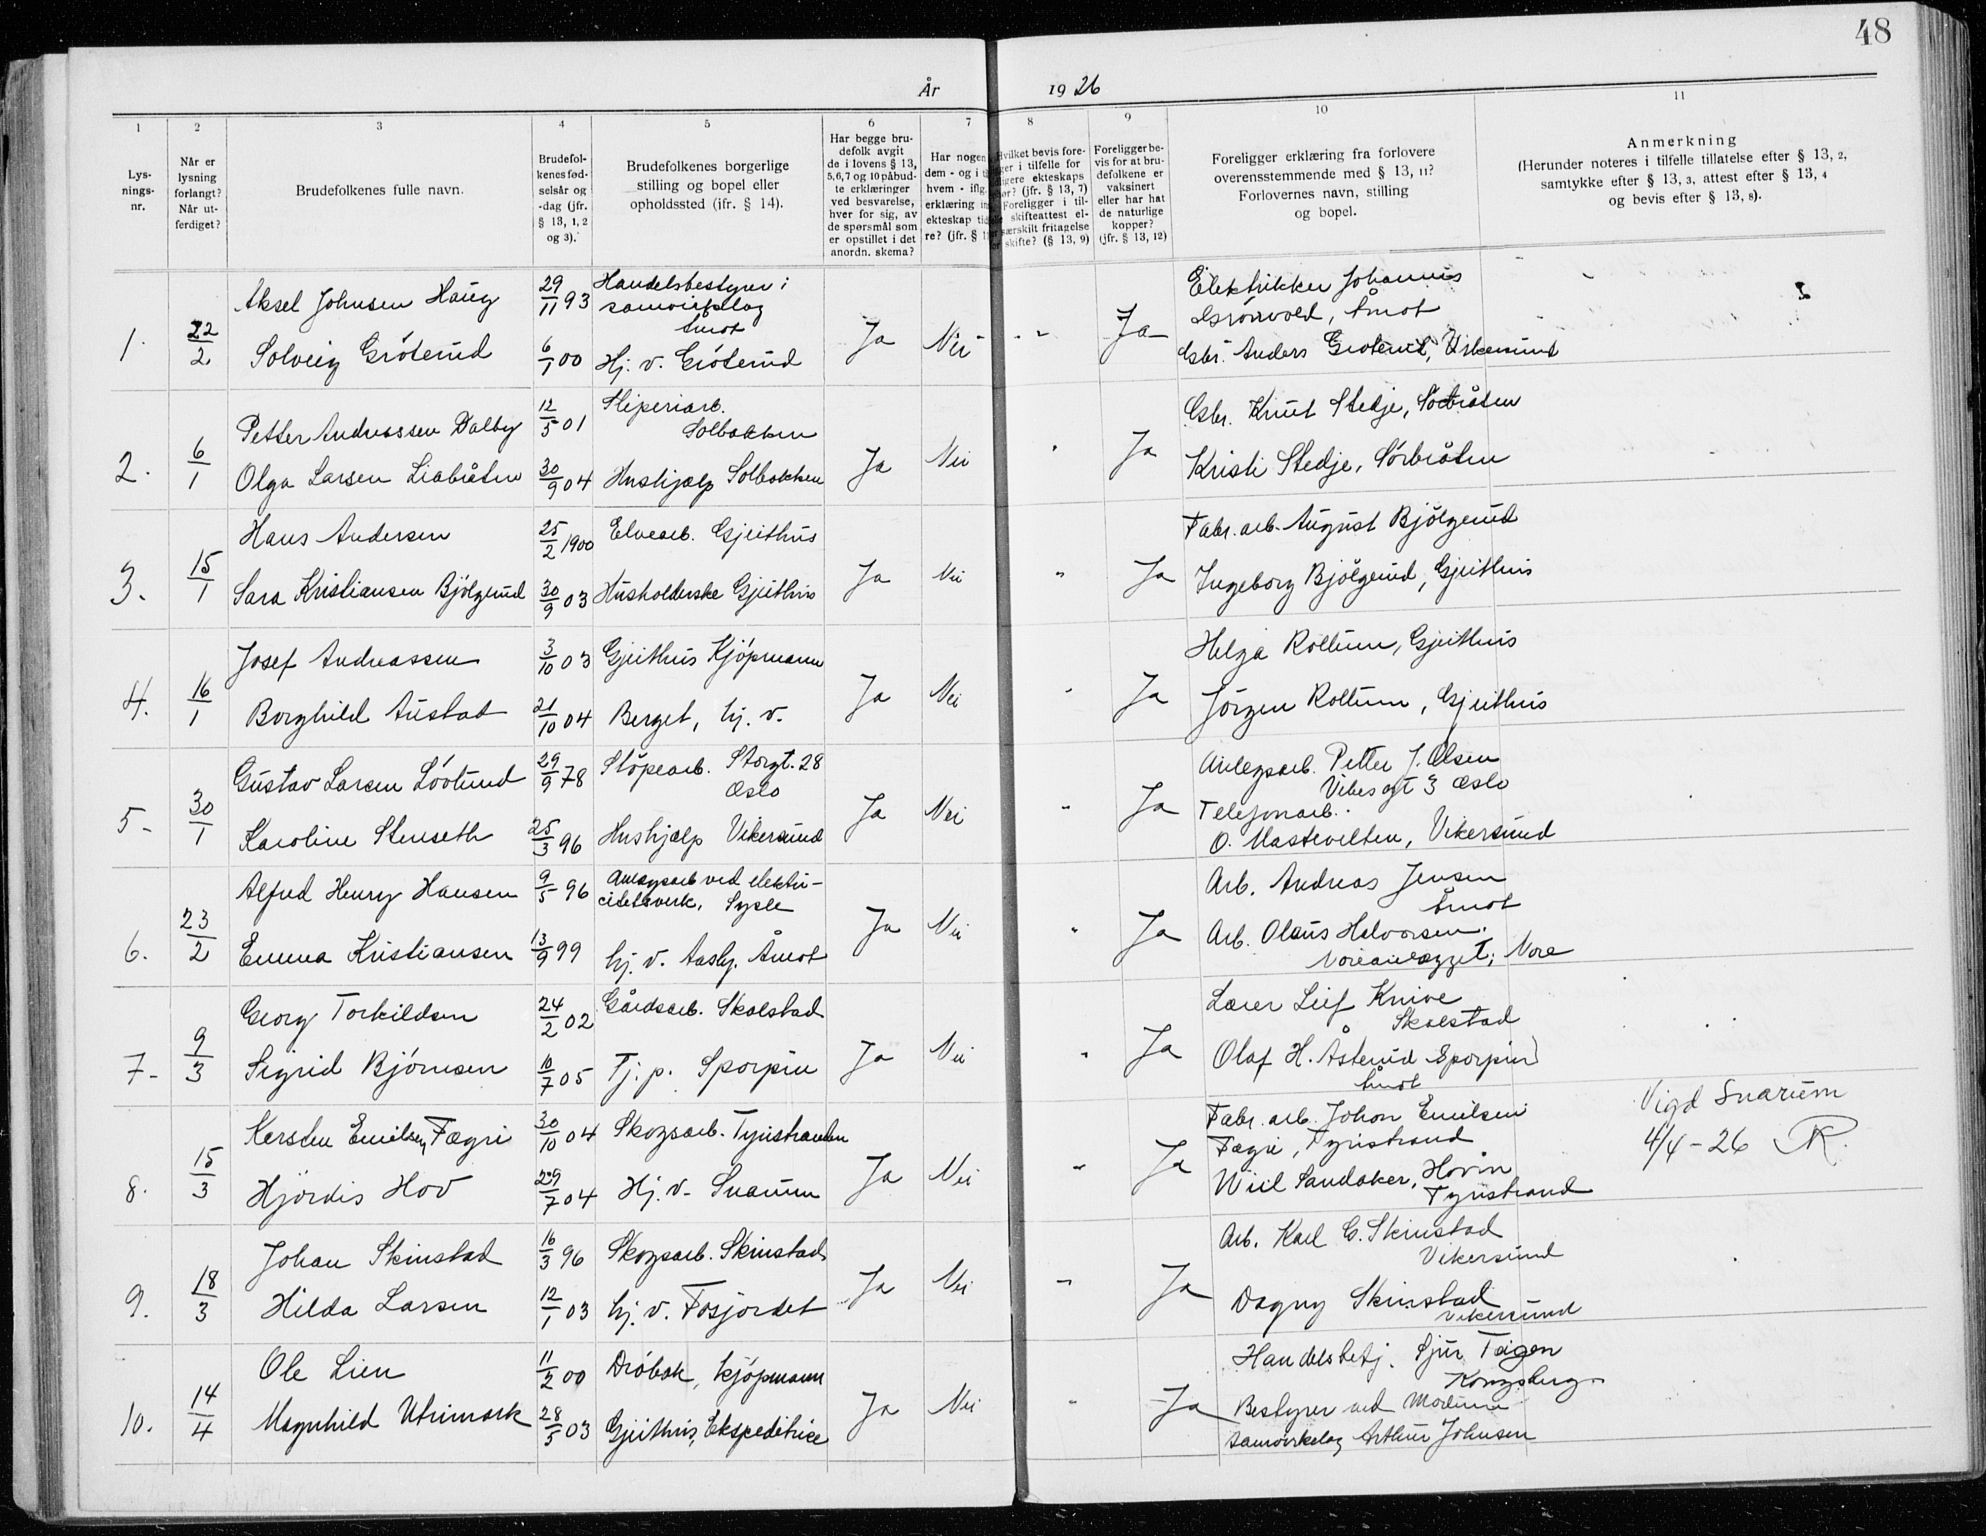 48
År 1926
1 2 3 4 5 6 7 8 9 10 11
Lys-
nings-
nr.
Når er
lysning
forlangt?
Når ut-
ferdiget?
Brudefolkenes fulle navn.
Brudefol-
kenes fød-
selsår og
-dag (jfr.
§ 13, 1, 2
og 3).
Brudefolkenes borgerlige
stilling og bopel eller
opholdssted (jfr. § 14).
Har begge bru-
defolk avgit
de i lovens § 13,
5,6,7 og 10 påbud-
te erklæringer
ved besvarelse,
hver for sig, av
de spørsmål som
er opstillet i det
anordn. skema?
Har nogen
dem - og i
hvem - iflg.
erklæring
ekteskap
re? (jfr. §
Hvilket bevis fore-
i tilfelle for
ekteskaps
(jfr. § 13, 7)
Foreligger i til-
skifteattest el-
særskilt fritagelse
skifte? (§ 13, 9)
Foreligger be-
vis for at bru-
defolkene er
vaksinert
eller har hat
de naturlige
kopper?
(jfr. § 13, 12)
Foreligger erklæring fra forlovere
overensstemmende med § 13, 11?
Forlovernes navn, stilling
og bopel.
Anmerkning
(Herunder noteres i tilfelle tillatelse efter § 13, 2,
samtykke efter § 13, 3, attest efter § 13, 4
og bevis efter § 13, 8).
1. 22/2 Aksel Johnsen Haug 29/11 93 Handelsbestyrer i
samvirkelag
Åmot
Solveig Gróterud 6/1 00 Hj. v. Gróterud Ja Nei " Ja
Elektrikker Johannes
Grönvold, Åmot
Gbr. Anders Groterud, Vikersund
2. 6/1 Petter Andreassen Dalby 12/5 01 Sliperiarb.
Solbakken
Olga Larsen Liabråten 30/9 04 Hushjælp Solbakken Ja Nei " Ja
Gbr. Knut Stedje, Sörbråten
Kristi Stedje, Sörbråten
3. 15/1 Hans Andersen 25/2 1900 Elvearb. Gjeithus
Sara Kristiansen Bjölgerud 30/9 03 Husholderske Gjeithus Ja Nei " Ja
Fabr. arb. August Bjölgerud
Ingeborg Bjölgerud, Gjeithus
4. 16/1 Josef Andreassen 3/10 03 Gjeithus Kjöpmann
Borghild Austad 21/10 04 Berget, hj. v. Ja Nei " Ja
Helga Rollum, Gjeithus
Jörgen Rollum, Gjeithus
5- 30/1 Gustav Larsen Lövlund 29/9 78 Stöpearb. Storgt. 28
Oslo
Karoline Stenseth 25/3 96 Hushjælp Vikersund Ja Nei " Ja
Anlegsarb. Petter J. Olsen
Vibesgt 3 Oslo
Telefonarb.
O. Mastevilten, Vikersund
6. 23/2 Alfred Henry Hansen 9/5 96 Anlegsarb ved elektri-
citetsverk, Sysle
Emma Kristiansen 13/9 99 hj. v. Aasby. Åmot Ja Nei " Ja
Arb. Andreas Jensen
Åmot
Arb. Olaus Halvorsen.
Noreanlegget, Nore
7- 9/3 Georg Torkildsen 24/2 02 Gårdsarb. Skalstad
Sigrid Björnsen 10/7 05 Tj. p. Sporpin Ja Nei " Ja
Lærer Leif Knive
Skalstad
Olaf H. Åsterud Sporpin
Åmot
8. 15/3 Kersten Emilsen Fægri 30/10 04 Skogsarb. Tyristranden
Hjördis Hov 29/7 04 Hj. v. Snarum Ja Nei " Ja
Fabr. arb. Johan Emilsen
Fægri, Tyristrand
Wiil Sandaker, Hovin
Tyristrand
Vigd Snarum
4/4 - 26 R.
9. 18/3 Johan Skinstad 16/3 96 Skogsarb. Skinstad
Hilda Larsen 12/1 03 hj. v. Fosjordet Ja Nei " Ja
Arb. Karl G. Skinstad
Vikersund
Dagny Skinstad
Vikersund
10. 14/4 Ole Lien 11/2 00 Dröbak, kjöpmann
Magnhild Utrimark 28/5 03 Gjeithus, Ekspeditrice Ja Nei " Ja
Handelsbetj. Sjur Teigen
Kongsberg
Bestyrer ved Modum
samvirkelag Arthur Johnsen